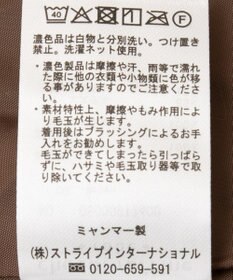 40 F
濃色品は白物と分別洗い。つけ置き
禁止。洗濯ネット使用。
・濃色製品は摩擦や汗、雨等で濡れ
た際に他の衣類や小物類に色が移
る事がありますのでご注意くださ
い。
・素材特性上、摩擦やもみ作用によ
り毛玉が生じます。
着用後はブラッシングによるお手
入れをお勧めします。
毛玉ができてしまったら引っぱらず
に、ハサミや毛玉取り器等で取
り除いてください。
ミャンマー製
(株)ストライプインターナショナル
☎ 0120-659-591